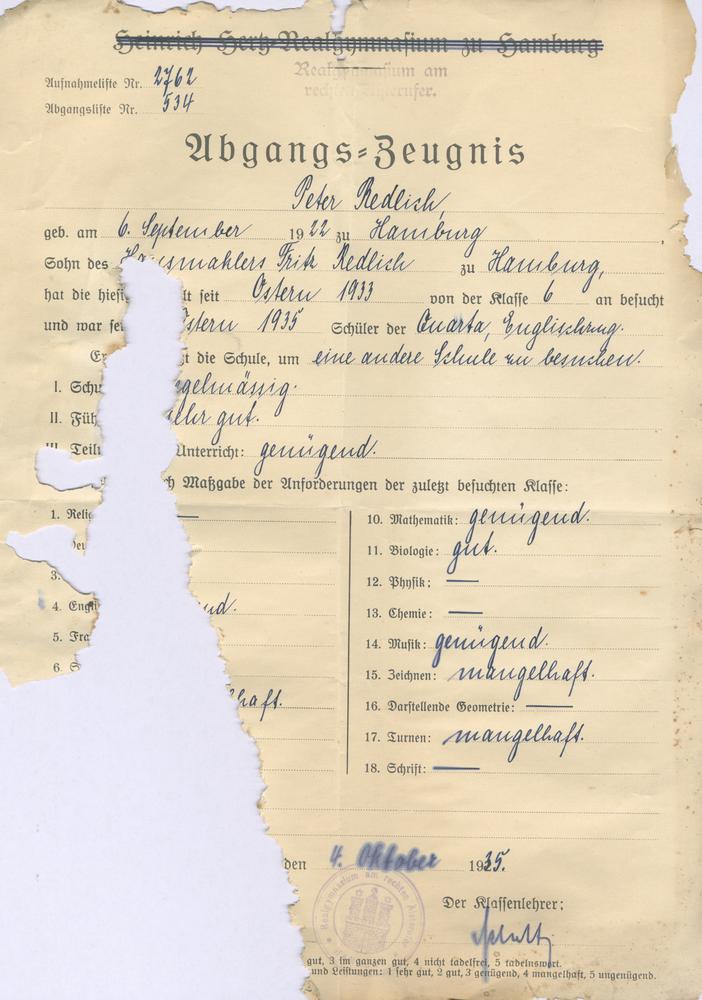 Heinrich Hertz-Realgymnasium zu Hamburg
Realgymnasium am
rechten Alsterufer.
Aufnahmeliste Nr. 2762
Abgangsliste Nr. 534
Abgangs-Zeugnis
Peter Redlich,
geb. am 6. September 1922 zu Hamburg,
Sohn des Fritz Redlich zu Hamburg,
hat die seit Ostern 1933 von der Klasse 6 an besucht
und war 1935 Schüler der Quarta, Englischzug.
die Schule, um eine andere Schule zu besuchen.
I. Schu egelmässig.
II. Füh sehr gut.
III. Teiln Unterricht: genügend.
Maßgabe der Anforderungen der zuletzt besuchten Klasse:
1. Relig —
3.
4. Engli nd.
5. Fra
6.
lhaft.
10. Mathematik: genügend.
11. Biologie: gut.
12. Physik: —
13. Chemie: —
14. Musik: genügend.
15. Zeichnen: mangelhaft.
16. Darstellende Geometrie: —
17. Turnen: mangelhaft.
18. Schrift: —
den 4. Oktober 1935.
Realgymnasium am rechten Alsterufer
Der Klassenlehrer:
gut, 3 im ganzen gut, 4 nicht tadelfrei, 5 tadelnswert.
und Leistungen: 1 sehr gut, 2 gut, 3 genügend, 4 mangelhaft, 5 ungenügend.